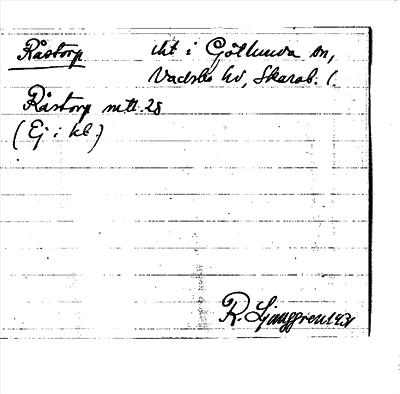 Råstorp    cht i Götlunda sn,
Vadsbo hd, Skarab. l.
Råstorp mtl 28
(Ej i kb)
R. Ljunggren 1931